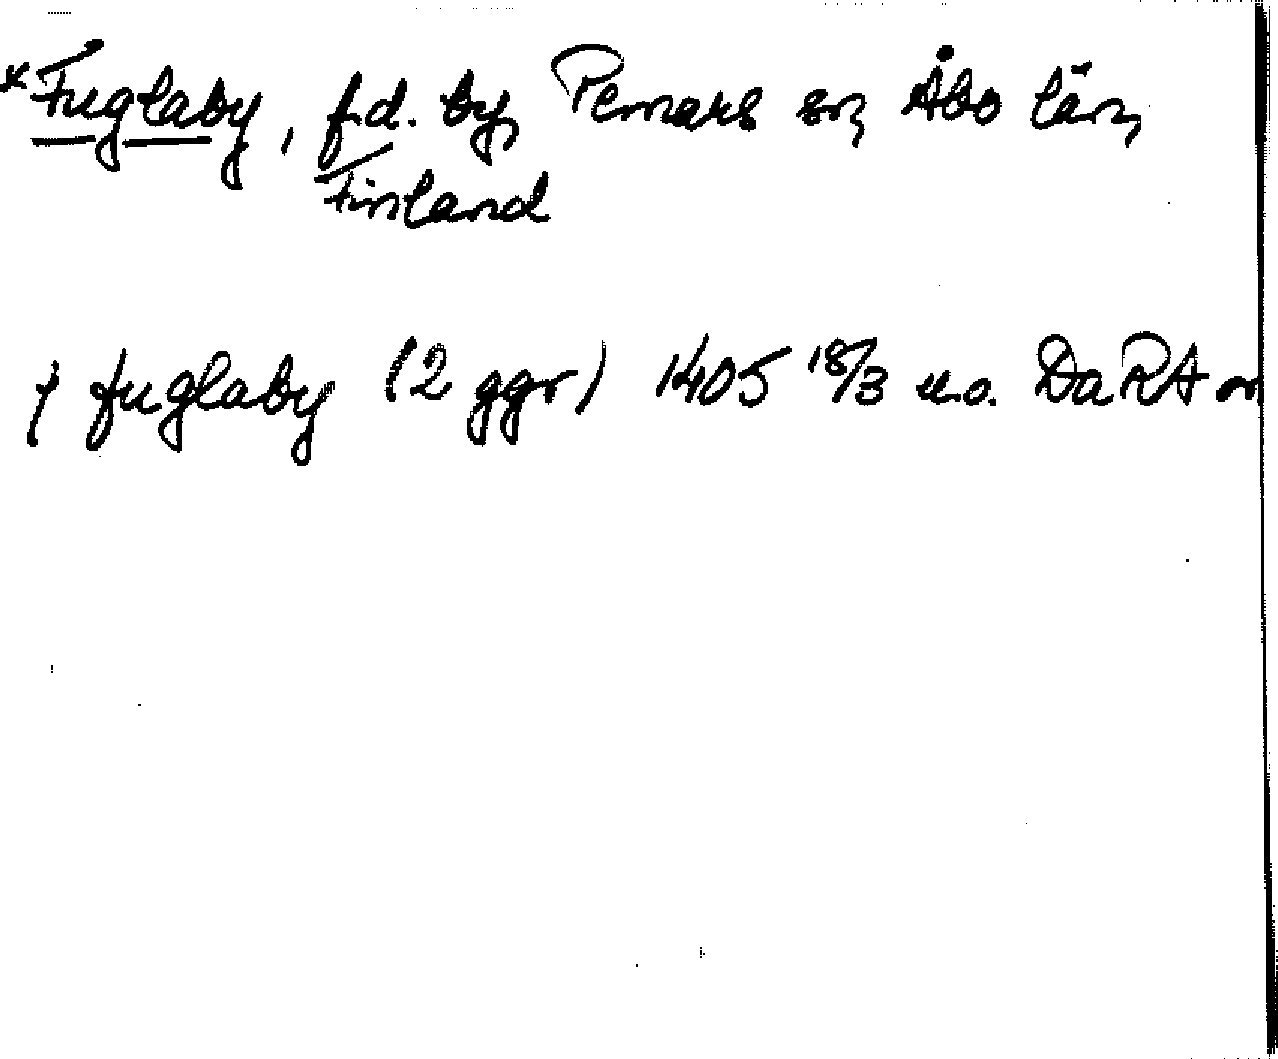 *Fuglaby, f.d. by, Pemarks sn, Åbo län,
Finland
j fuglaby (2 ggr) 1405 18/3 u.o. DaRA or